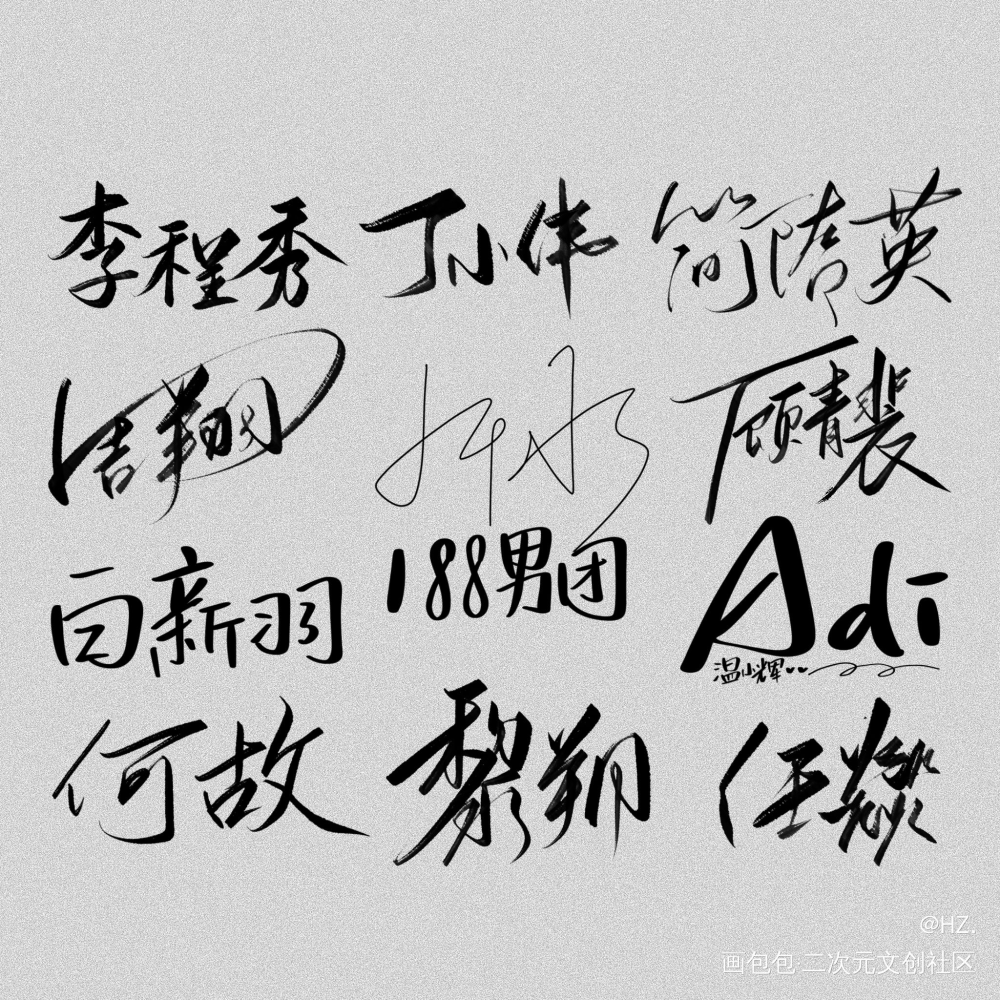 李程秀 丁小伟 简隋英
周翔 顾青裴
白新羽 188男团 Adi
温小辉
何故 黎朔 任燚
@HZ.
画包包·二次元文创社区